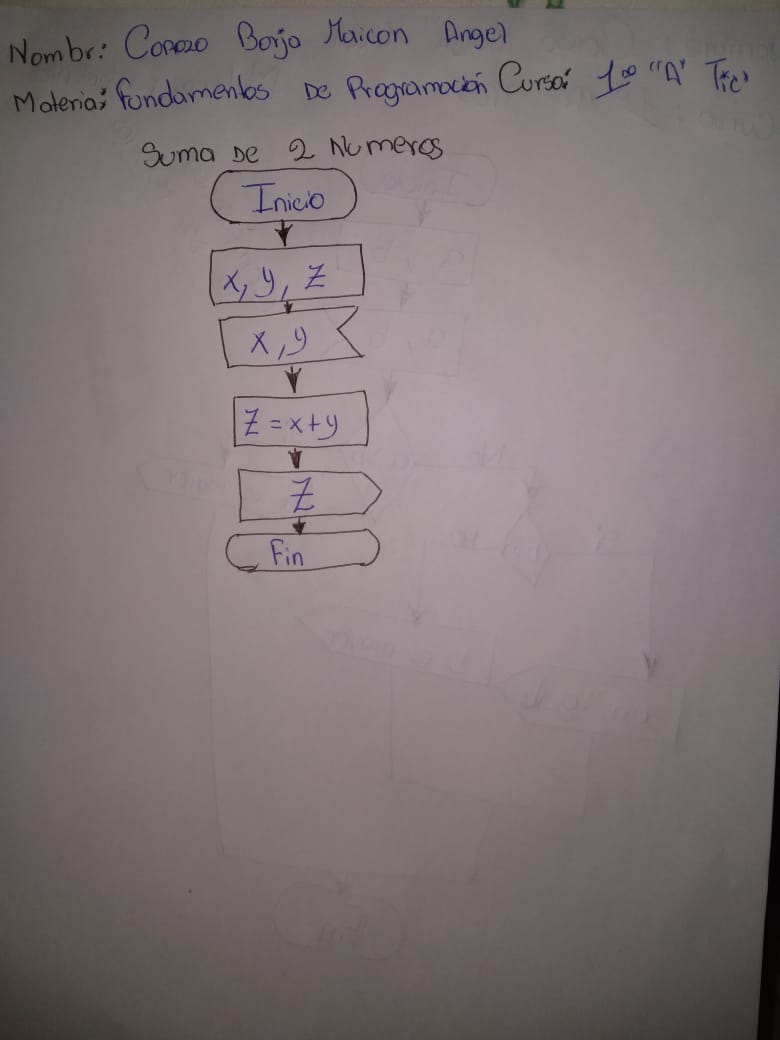 Nombr: Corozo Borja Maicon Angel
Materia: Fundamentos De Programación Curso: 1ro "A" Tic's
Suma De 2 Numeros
Inicio
x, y, Z
x, y
Z = x+y
Z
Fin